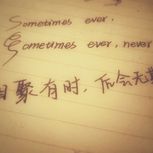 Sometimes ever,
Sometimes ever, never
相聚有时，后会无